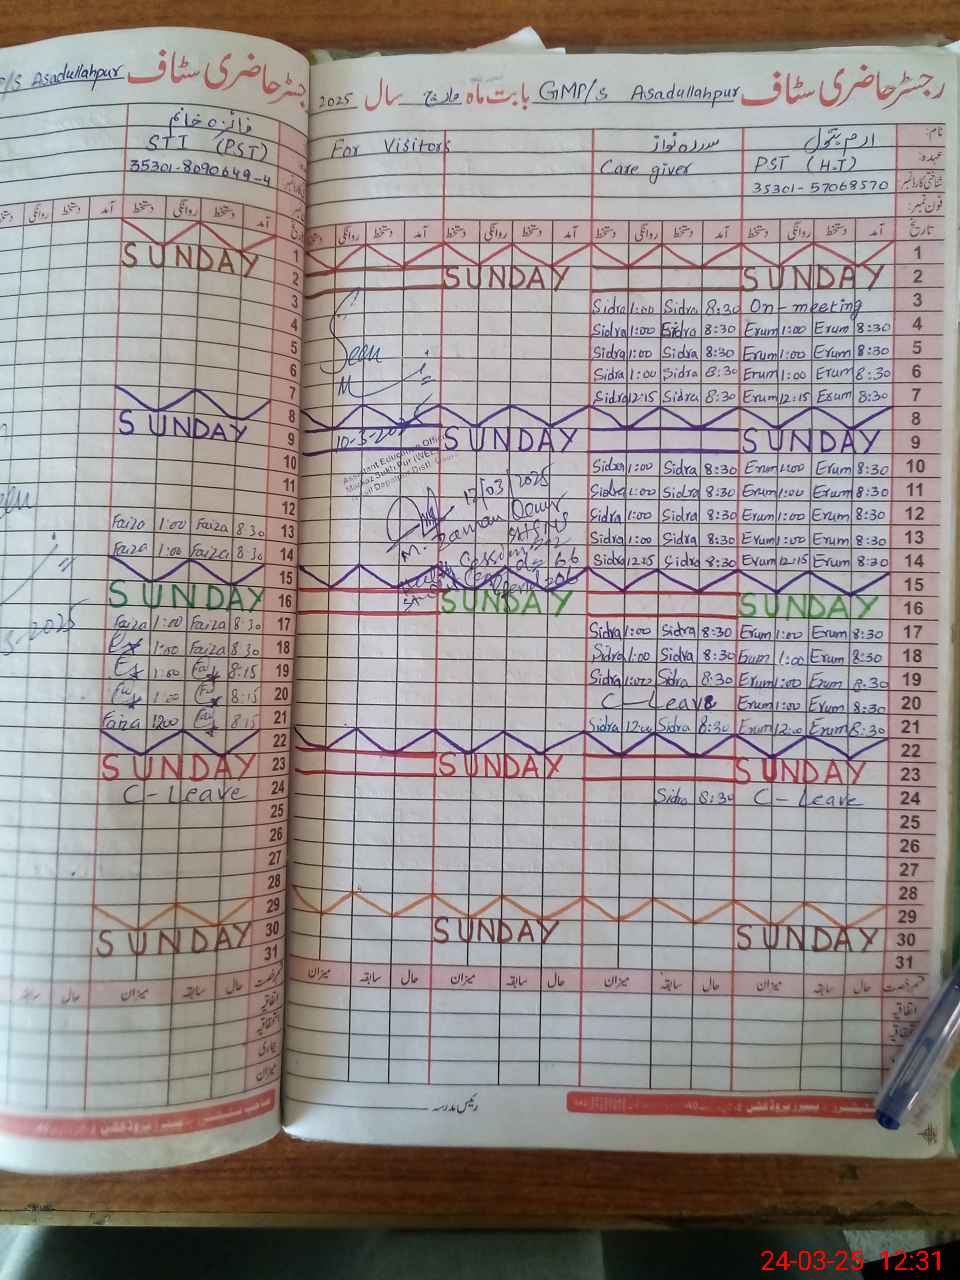 رجسٹر حاضری سٹاف GMP/S Asadullahpur بابت ماہ مارچ سال 2025
نام: ارم بتول سدرہ نواز For Visitors
عہدہ: PST (H.T) Care giver
35301-57068570
فون نمبر:
تاریخ آمد دستخط روانگی دستخط آمد دستخط روانگی دستخط آمد دستخط روانگی دستخط آمد دستخط روانگی دستخط
1
SUNDAY SUNDAY 2
Sidra 1:00 Sidra 8:30 On-meeting 3
Sidra 1:00 Sidra 8:30 Erum 1:00 Erum 8:30 4
Sidra 1:00 Sidra 8:30 Erum 1:00 Erum 8:30 5
Seen Sidra 1:00 Sidra 8:30 Erum 1:00 Erum 8:30 6
Sidra 12:15 Sidra 8:30 Erum 12:15 Erum 8:30 7
8
10-3-2025 SUNDAY SUNDAY 9
Assistant Education Officer
Sidra 1:00 Sidra 8:30 Erum 1:00 Erum 8:30 10
17/03/2025 Sidra 1:00 Sidra 8:30 Erum 1:00 Erum 8:30 11
Sidra 1:00 Sidra 8:30 Erum 1:00 Erum 8:30 12
M. Zaman Sidra 1:00 Sidra 8:30 Erum 1:00 Erum 8:30 13
Sidra 12:15 Sidra 8:30 Erum 12:15 Erum 8:30 14
15
SUNDAY SUNDAY 16
Sidra 1:00 Sidra 8:30 Erum 1:00 Erum 8:30 17
Sidra 1:00 Sidra 8:30 Erum 1:00 Erum 8:30 18
Sidra 1:00 Sidra 8:30 Erum 1:00 Erum 8:30 19
C-Leave Erum 1:00 Erum 8:30 20
Sidra 12:00 Sidra 8:30 Erum 12:00 Erum 8:30 21
22
SUNDAY SUNDAY 23
Sidra 8:30 C-Leave 24
25
26
27
28
29
SUNDAY SUNDAY 30
31
حال سابقہ میزان حال سابقہ میزان حال سابقہ میزان
اتفاقیہ
رئیس مدرسہ
رجسٹر حاضری سٹاف Asadullahpur
فائزہ خانم
STI (PST)
35301-8090649-4
آمد دستخط روانگی دستخط آمد دستخط روانگی
1
SUNDAY 2
3
4
5
6
7
8
SUNDAY 9
10
11
12
Faiza 1:00 Faiza 8:30 13
Faiza 1:00 Faiza 8:30 14
15
SUNDAY 16
Faiza 1:00 Faiza 8:30 17
1:00 Faiza 8:30 18
1:00 8:15 19
1:00 8:15 20
Faiza 1200 8:15 21
22
SUNDAY 23
C-Leave 24
25
26
27
28
29
SUNDAY 30
31
حال سابقہ میزان حال سابقہ
اتفاقیہ
بیماری
میزان
24-03-25 12:31